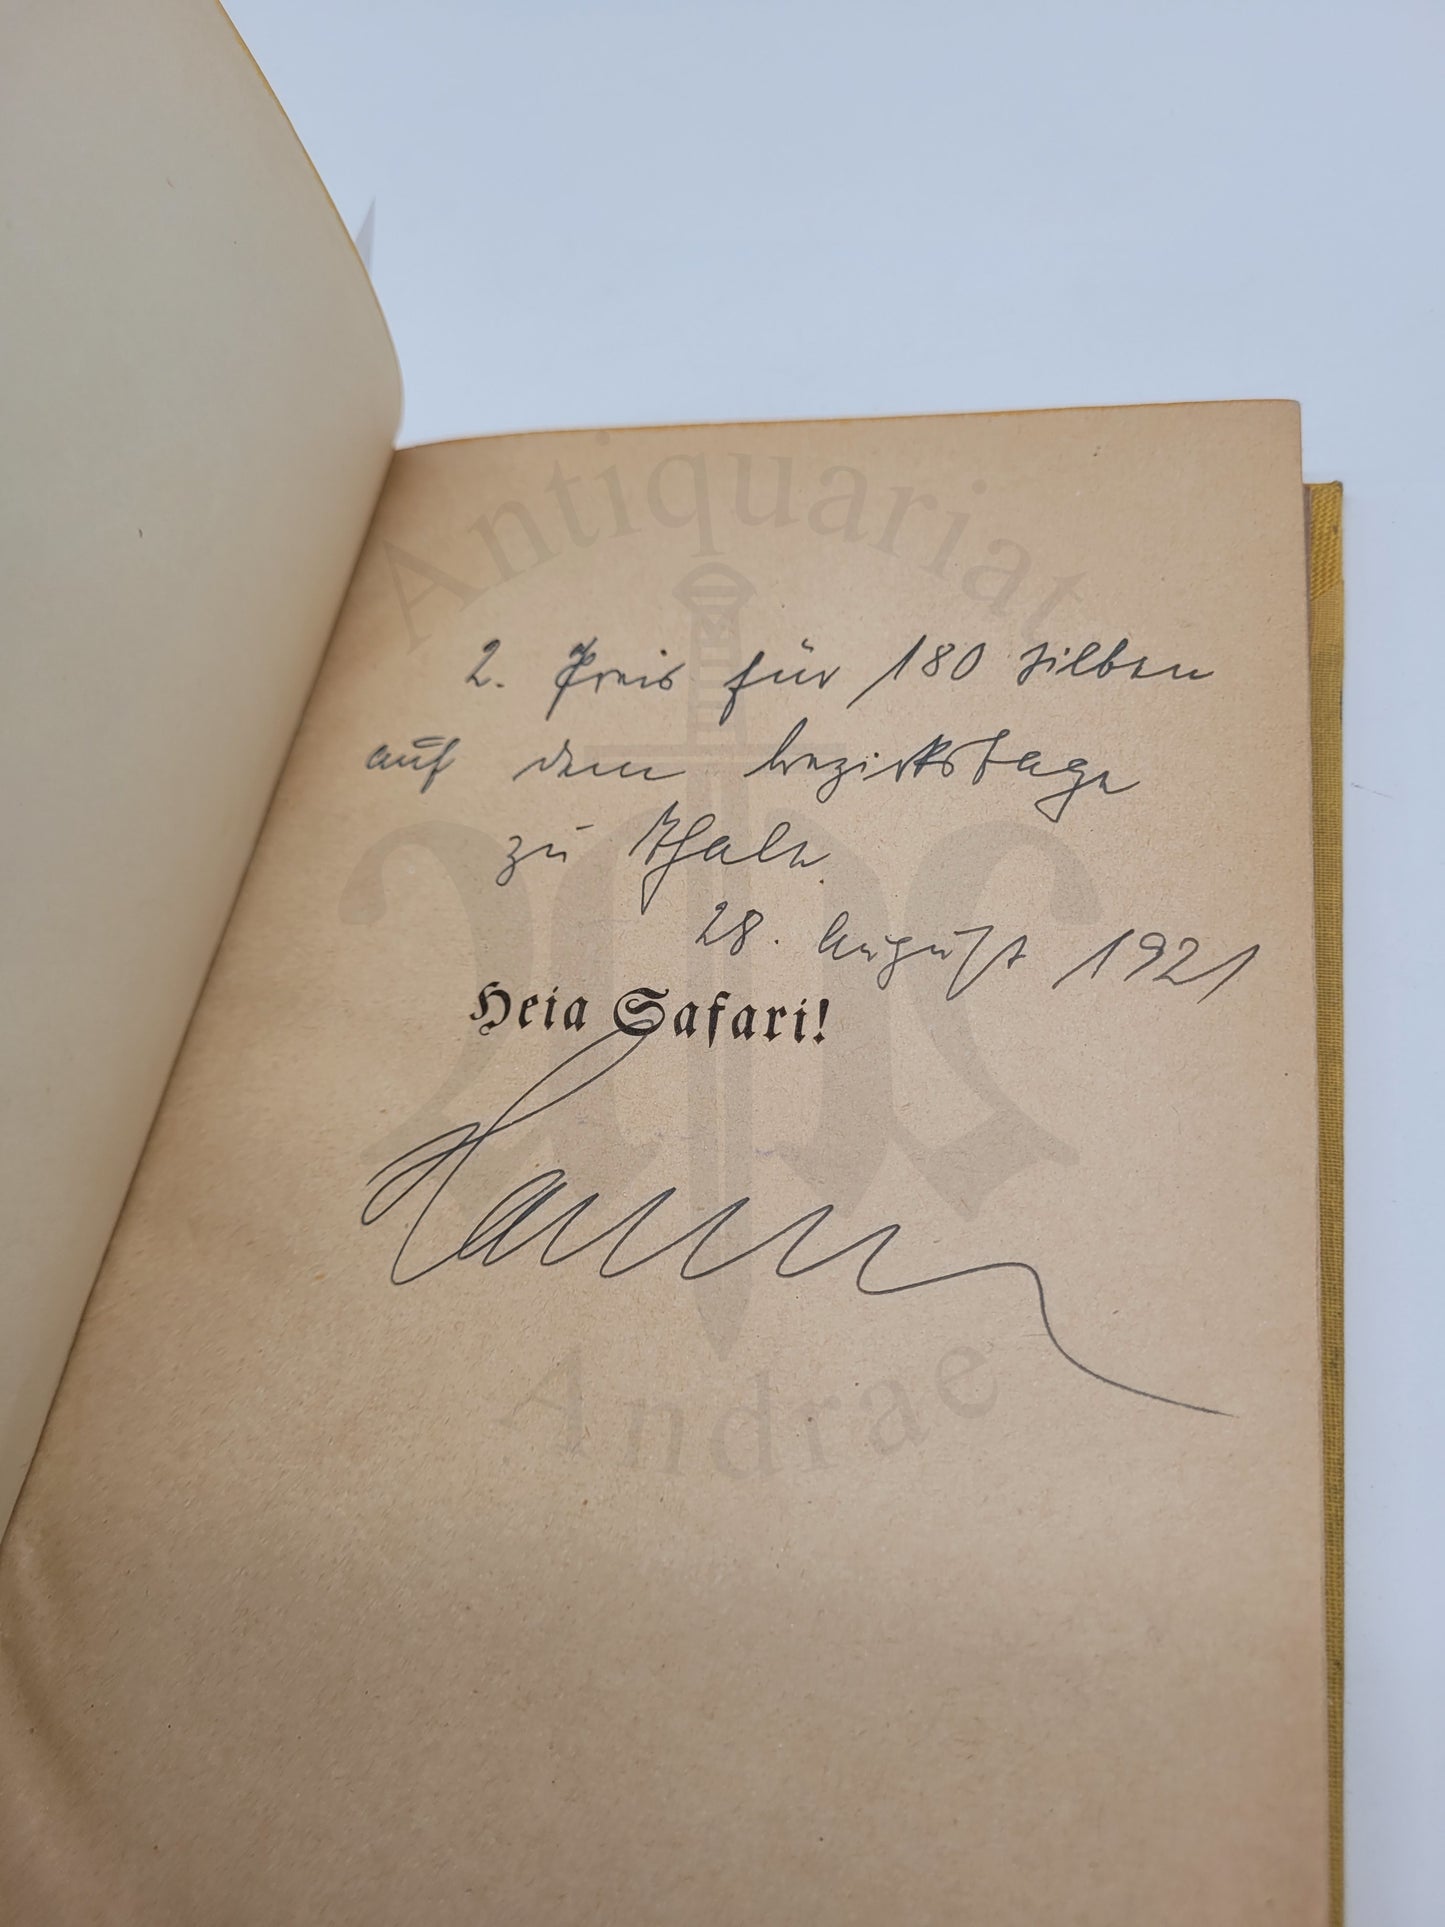 Antiquariat
2. Preis für 180 silben
auf dem bezirkstage
zu thale
28. august 1921
Heia Safari!
Andrae